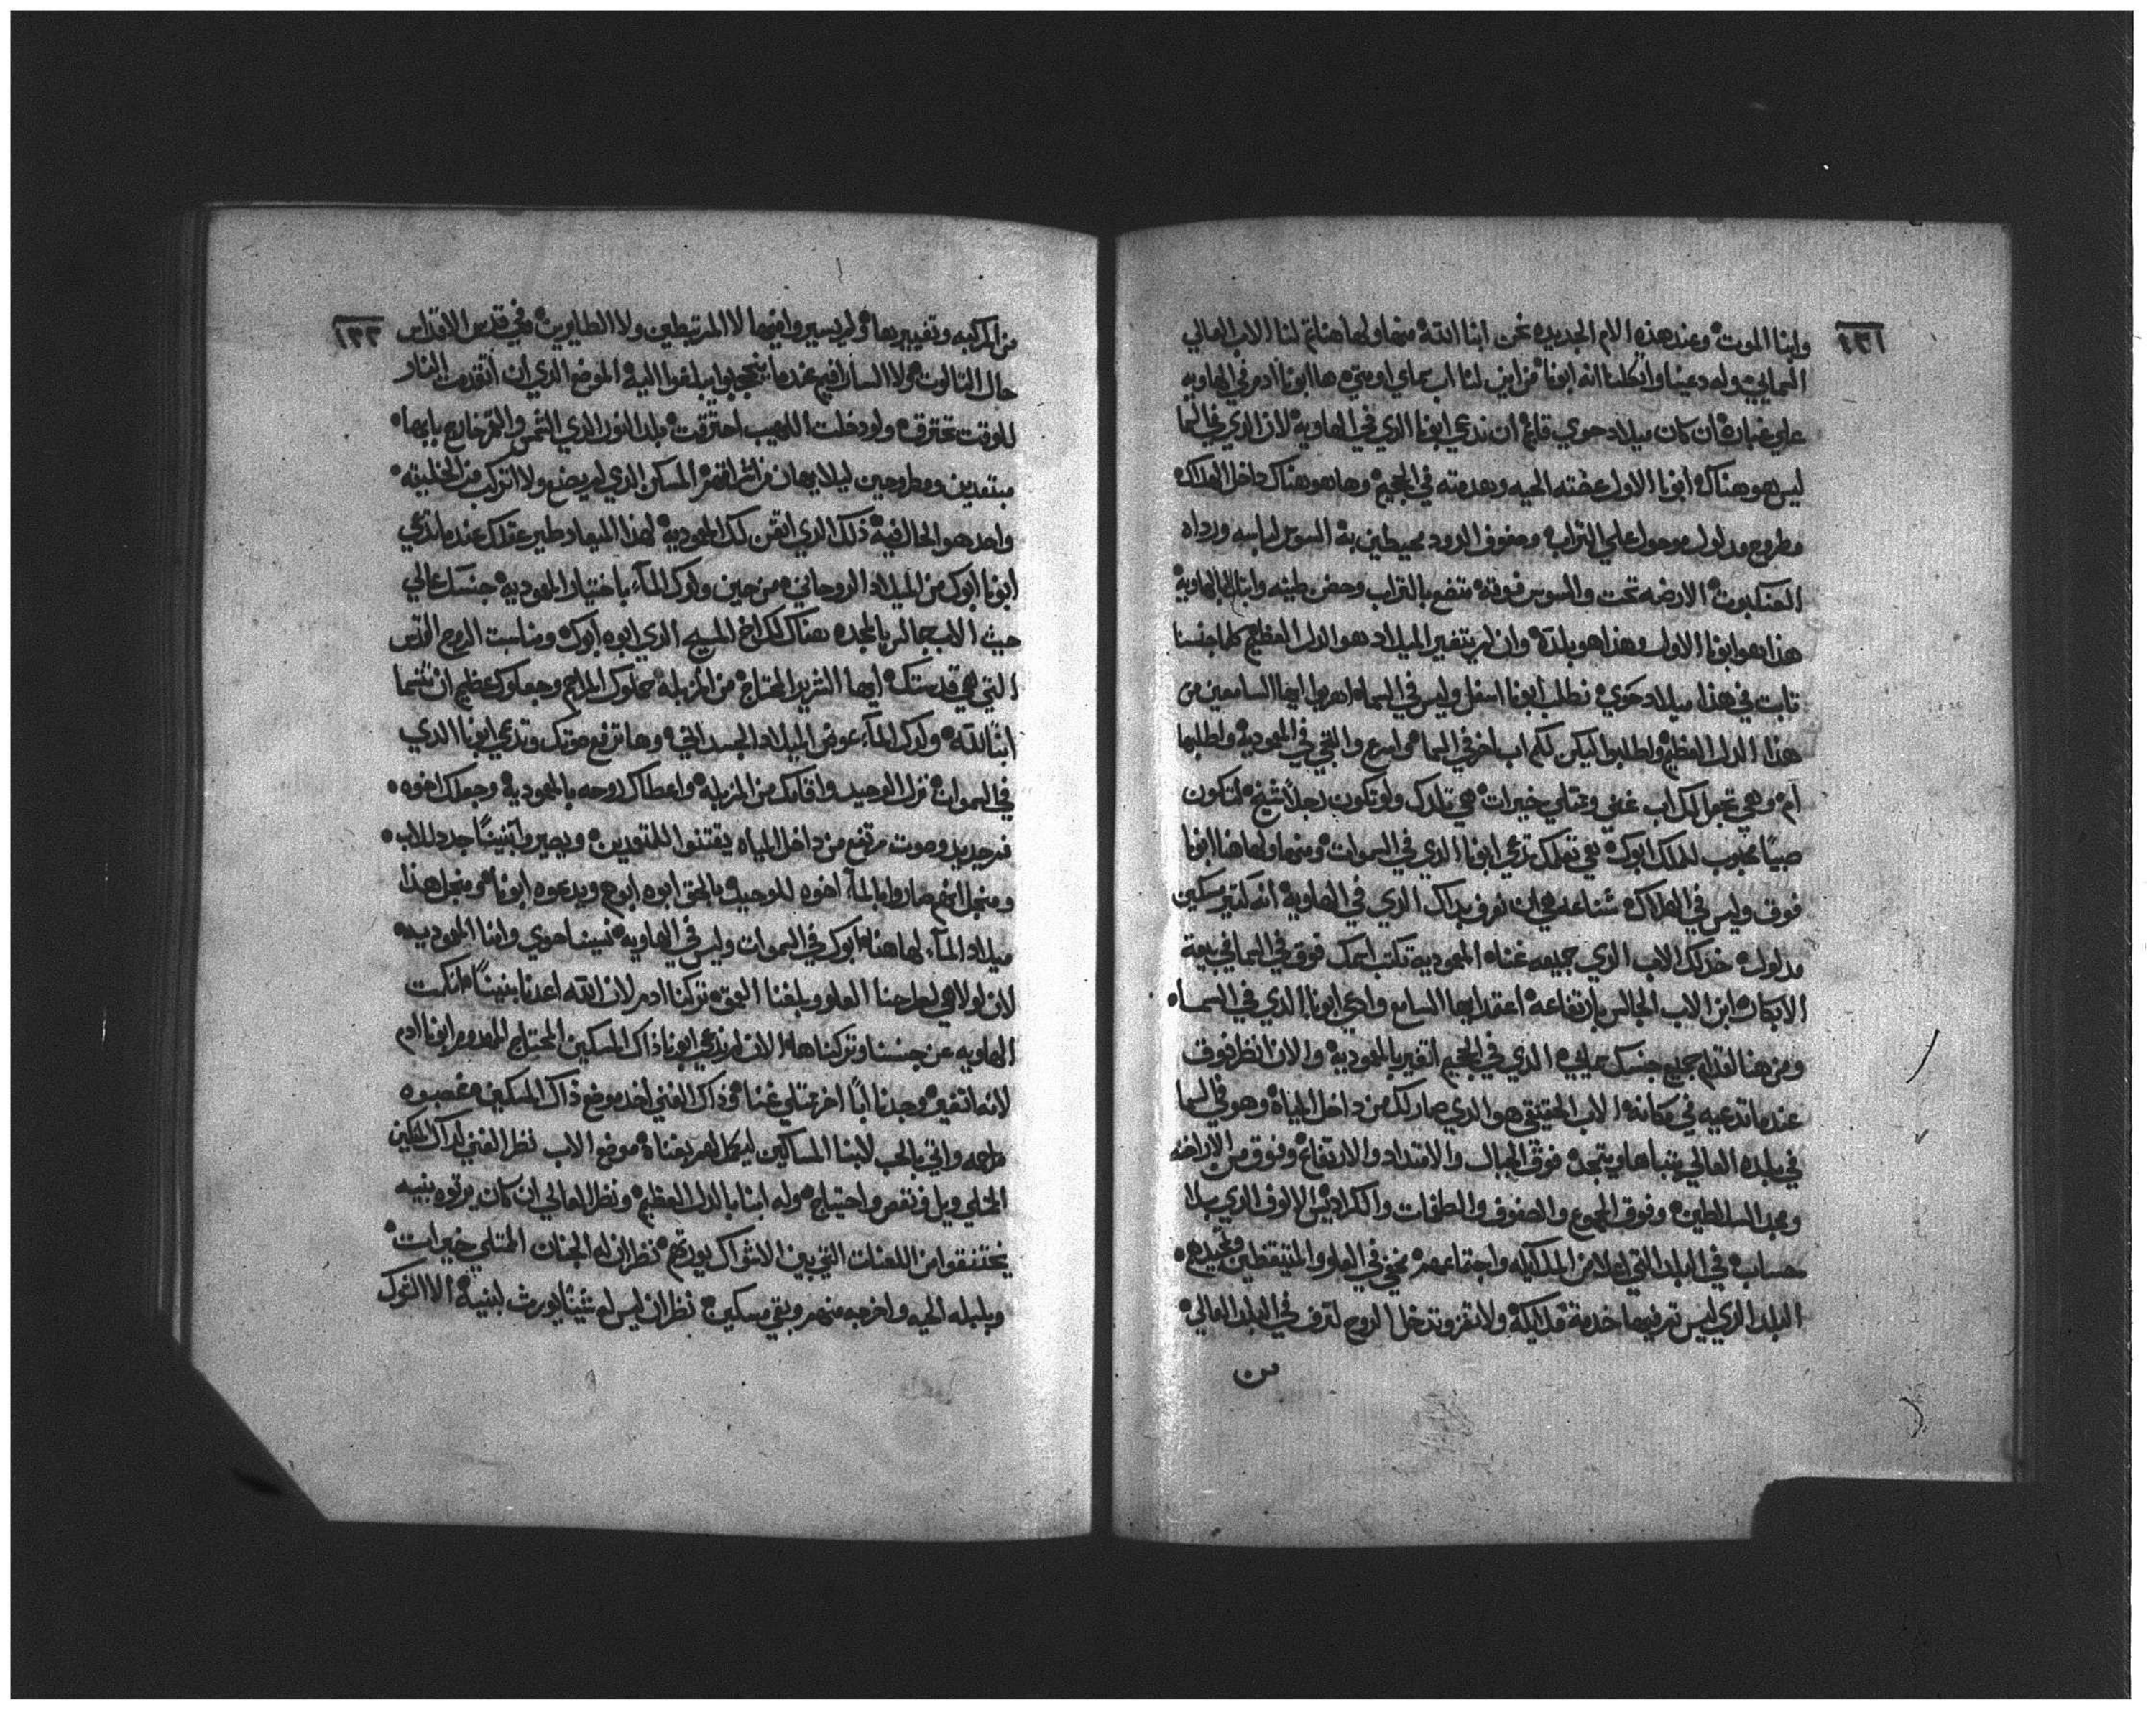 ١٣١
ولبنا الموت وعند هذه الام الجديده نحن ابنا الله منها ولهاهنا تم لنا الاب العالي
السمايي وله دعينا واتكلنا انه ابونا من اين لنا اب سماي اوميتي ها ابونا ادم في الهاويه
علي غباره ان كان ميلاد حوي قايم ان ندعي ابونا الذي في الهاويه لان الذي في السما
ليس هو هناك ابونا الاول عضته الحيه وهدمته في الجحيم وها هو هناك داخل الهلاك
مطروح مدلول موحول علي التراب وصفوف الدود محيطين به السوس لباسه ورداه
العنكبوت الارضه تحت والسوس فوقه متضع بالتراب وحضن طينه وابتلا الهاويه
هذا هو ابونا الاول وهذا هو بلده وان لم يتغير الميلاد هو الدل العظيم كلما جنسنا
تابت في هذا ميلاد حوي نطلب ابونا اسفل وليس في السما اهربوا ايها السامعين من
هذا الدل العظيم واطلبوا ليكن لكم اب اخر في السما اسرع والتجي في المعموديه واطلبها
ام وهي تجعل لك اب غني وممتلي خيرات هي تلدك ولو تكون رجلا شيخ لتكون
صبيا محبوب لدلك ابوك هي تعلمك تدعي ابونا الذي في السموات ومنها ولهاهنا ابونا
فوق وليس في الهلاك شناعه هي ان تعرف بداك الذي في الهاويه انه كتير مسكين
مدلول خد لك الاب الذي جميعه غناه المعموديه تكتب اسمك فوق في السما في بيعة
الابكار ابن الاب الجالس بارتفاعه اعتمد ايها السامع وادعي ابونا الذي في السما
ومن هنا لقدام جميع جنسك سمايي الذي في الجحيم اتغير بالمعموديه والان انظر فوق
عندما تدعيه في مكانه الاب الحقيقي هو الذي صار لك من داخل المياه وهو في السما
في بلده العالي يتباها ويتمجد فوق الجبال والامتداد والارتفاع وفوق من الاراخنه
ومجد السلاطين وفوق الجموع والصفوف والطغمات والكراديس الالوف الذي بلا
حساب في البلد التي اعلا من الملايكه واجتماعهم مخفي في العلو والمتيقظين وتمجيدهم
البلد الذي ليس ترفيها خدمة ملايكه ولا تقر وتدخل الروح لترف في البلد العالي
من
١٣٢
من المركبه وتغييرها ولم يسير وافيها لا المرتبطين ولا الطايرين وفي قدس الاقداس
حال التالوت ولا السارافيم عندما يتحجبوا يبلغوا اليه الموضع الذي ان اتقدمت النار
للوقت تحترق ولو دخلت اللهيب احترقت بلد النور الذي الشمس والقمر خارج بابها
مبتعدين ومطروحين ليلا يهان من اشراقهم المسكن الذي لم يصنع ولا اتركب من الخليقه
واحد هو الحال فيه ذلك الذي اتقن لك المعموديه لهذا الميعاد طير عقلك عندما تدعي
ابونا ابوك من الميلاد الروحاني من حين ولدك الماء باختيار المعموديه جنسك عالي
حيث الاب جالس بالمجد هناك لك اخ المسيح الذي ابوه ابوك ومناسبت الروح القدس
التي هي قدستك ايها الشريد المحتاج من المزبله حملوك المراحم وجعلوك عظيم ان تتسما
ابنا لله ولدك الماء عوض الميلاد الجسداني وها ترفع صوتك وتدعي ابونا الذي
في السموات نزل الوحيد واقامك من المزبله واعطاك روحه بالمعموديه وجعلك اخوه
فم جديد وصوت مرتفع من داخل المياه يقتنوا للتوديين ويصيروا بنينا جدد للاب
ومنجل انهم صاروا بالماء اخوه للوحيد بالحق ابوه ابوهم ويدعوه ابونا ومنجل هذا
ميلاد الماء لهاهنا ابوك في السموات وليس في الهاويه نسينا حوي ولنا المعموديه
لان لولا هي لطرحنا العلو وبلغنا العمق تركنا ادم لان الله اعدنا بنينا اتمكت
الهاويه عن جنسنا وتركناها الان لم ندعي ابونا داك المسكين المحتاج المهدوم ابونا ادم
لانه اتغير وجدنا ابا اخر ممتلي غنا وداك الغني اخد موضع داك المسكين غصبوه
مراحمه واتي بالحب لابنا المساكين ليكمل لهم بغناه موضع الاب نظر الغني لداك المسكين
الخلي ويل ونقص واحتياج وله ابنا بالدل العظيم ونظر العالي ان كان يرتوه بنيه
يختنقوا من اللعنات التي بين الاشواك يورتهم نظر ان له الجنان الممتلي خيرات
وبلبله الحيه واخرجه منهم وبقي مسكين نظر ان ليس له شيئا يورث لبنيه الا الشوك